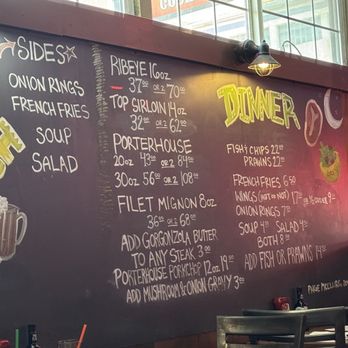 SIDES
ONION RINGS
FRENCH FRIES
SOUP
SALAD
RIBEYE 16oz
37.00 OR 2 70.00
TOP SIRLOIN 14oz
32.00 OR 2 62.00
PORTERHOUSE
20oz 43.00 OR 2 84.00
30oz 56.00 OR 2 108.00
FILET MIGNON 8oz
36.00 OR 2 68.00
ADD GORGONZOLA BUTTER
TO ANY STEAK 3.00
PORTERHOUSE PORKCHOP 12oz 19.00
ADD MUSHROOM & ONION GRAVY 3.00
DINNER
FISH & CHIPS 22.00
PRAWNS 22.00
FRENCH FRIES 6.50
WINGS (HOT OR NOT) 17.00 OR 1/2 ORDER 9.00
ONION RINGS 7.00
SOUP 4.00 SALAD 4.00
BOTH 8.00
ADD FISH OR PRAWNS 14.00